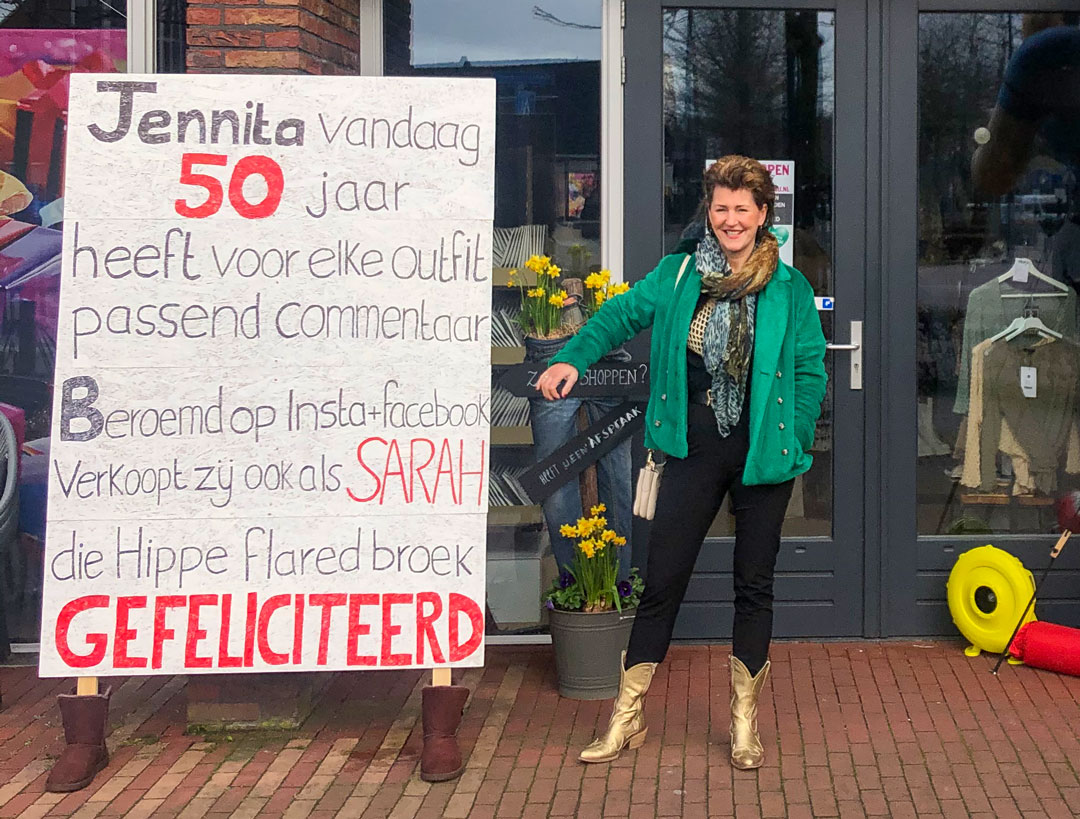 Jennita vandaag
50 jaar
heeft voor elke outfit
passend commentaar
Beroemd op Insta+facebook
Verkoopt zij ook als SARAH
die Hippe flared broek
GEFELICITEERD
SHOPPEN?
AFSPRAAK